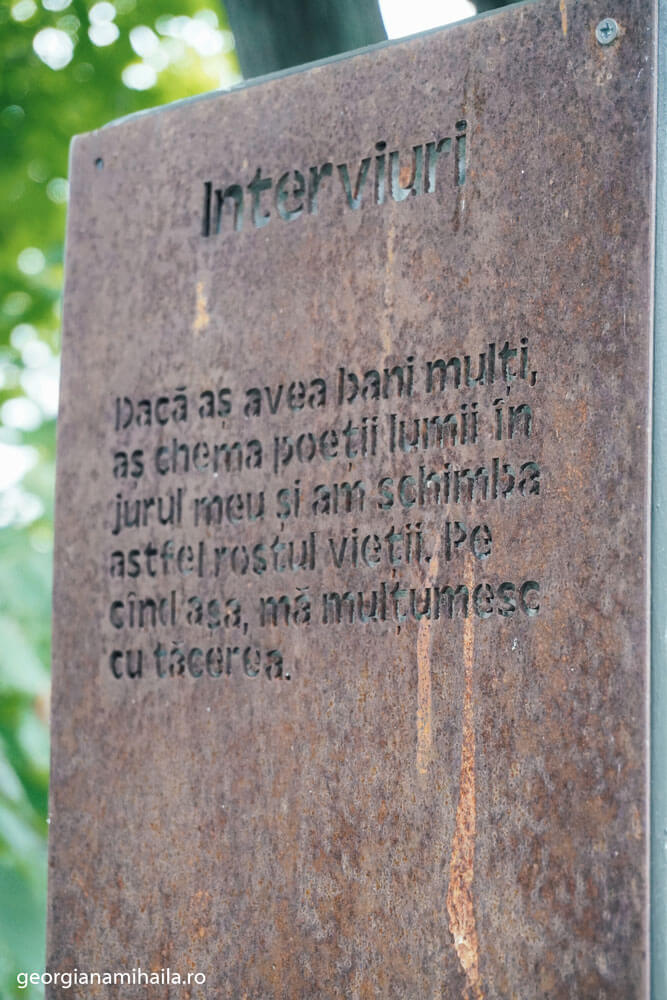 Interviuri
Dacă aș avea bani mulți,
aș chema poeții lumii în
jurul meu și am schimba
astfel rostul vieții. Pe
cînd așa, mă mulțumesc
cu tăcerea.
georgianamihaila.ro